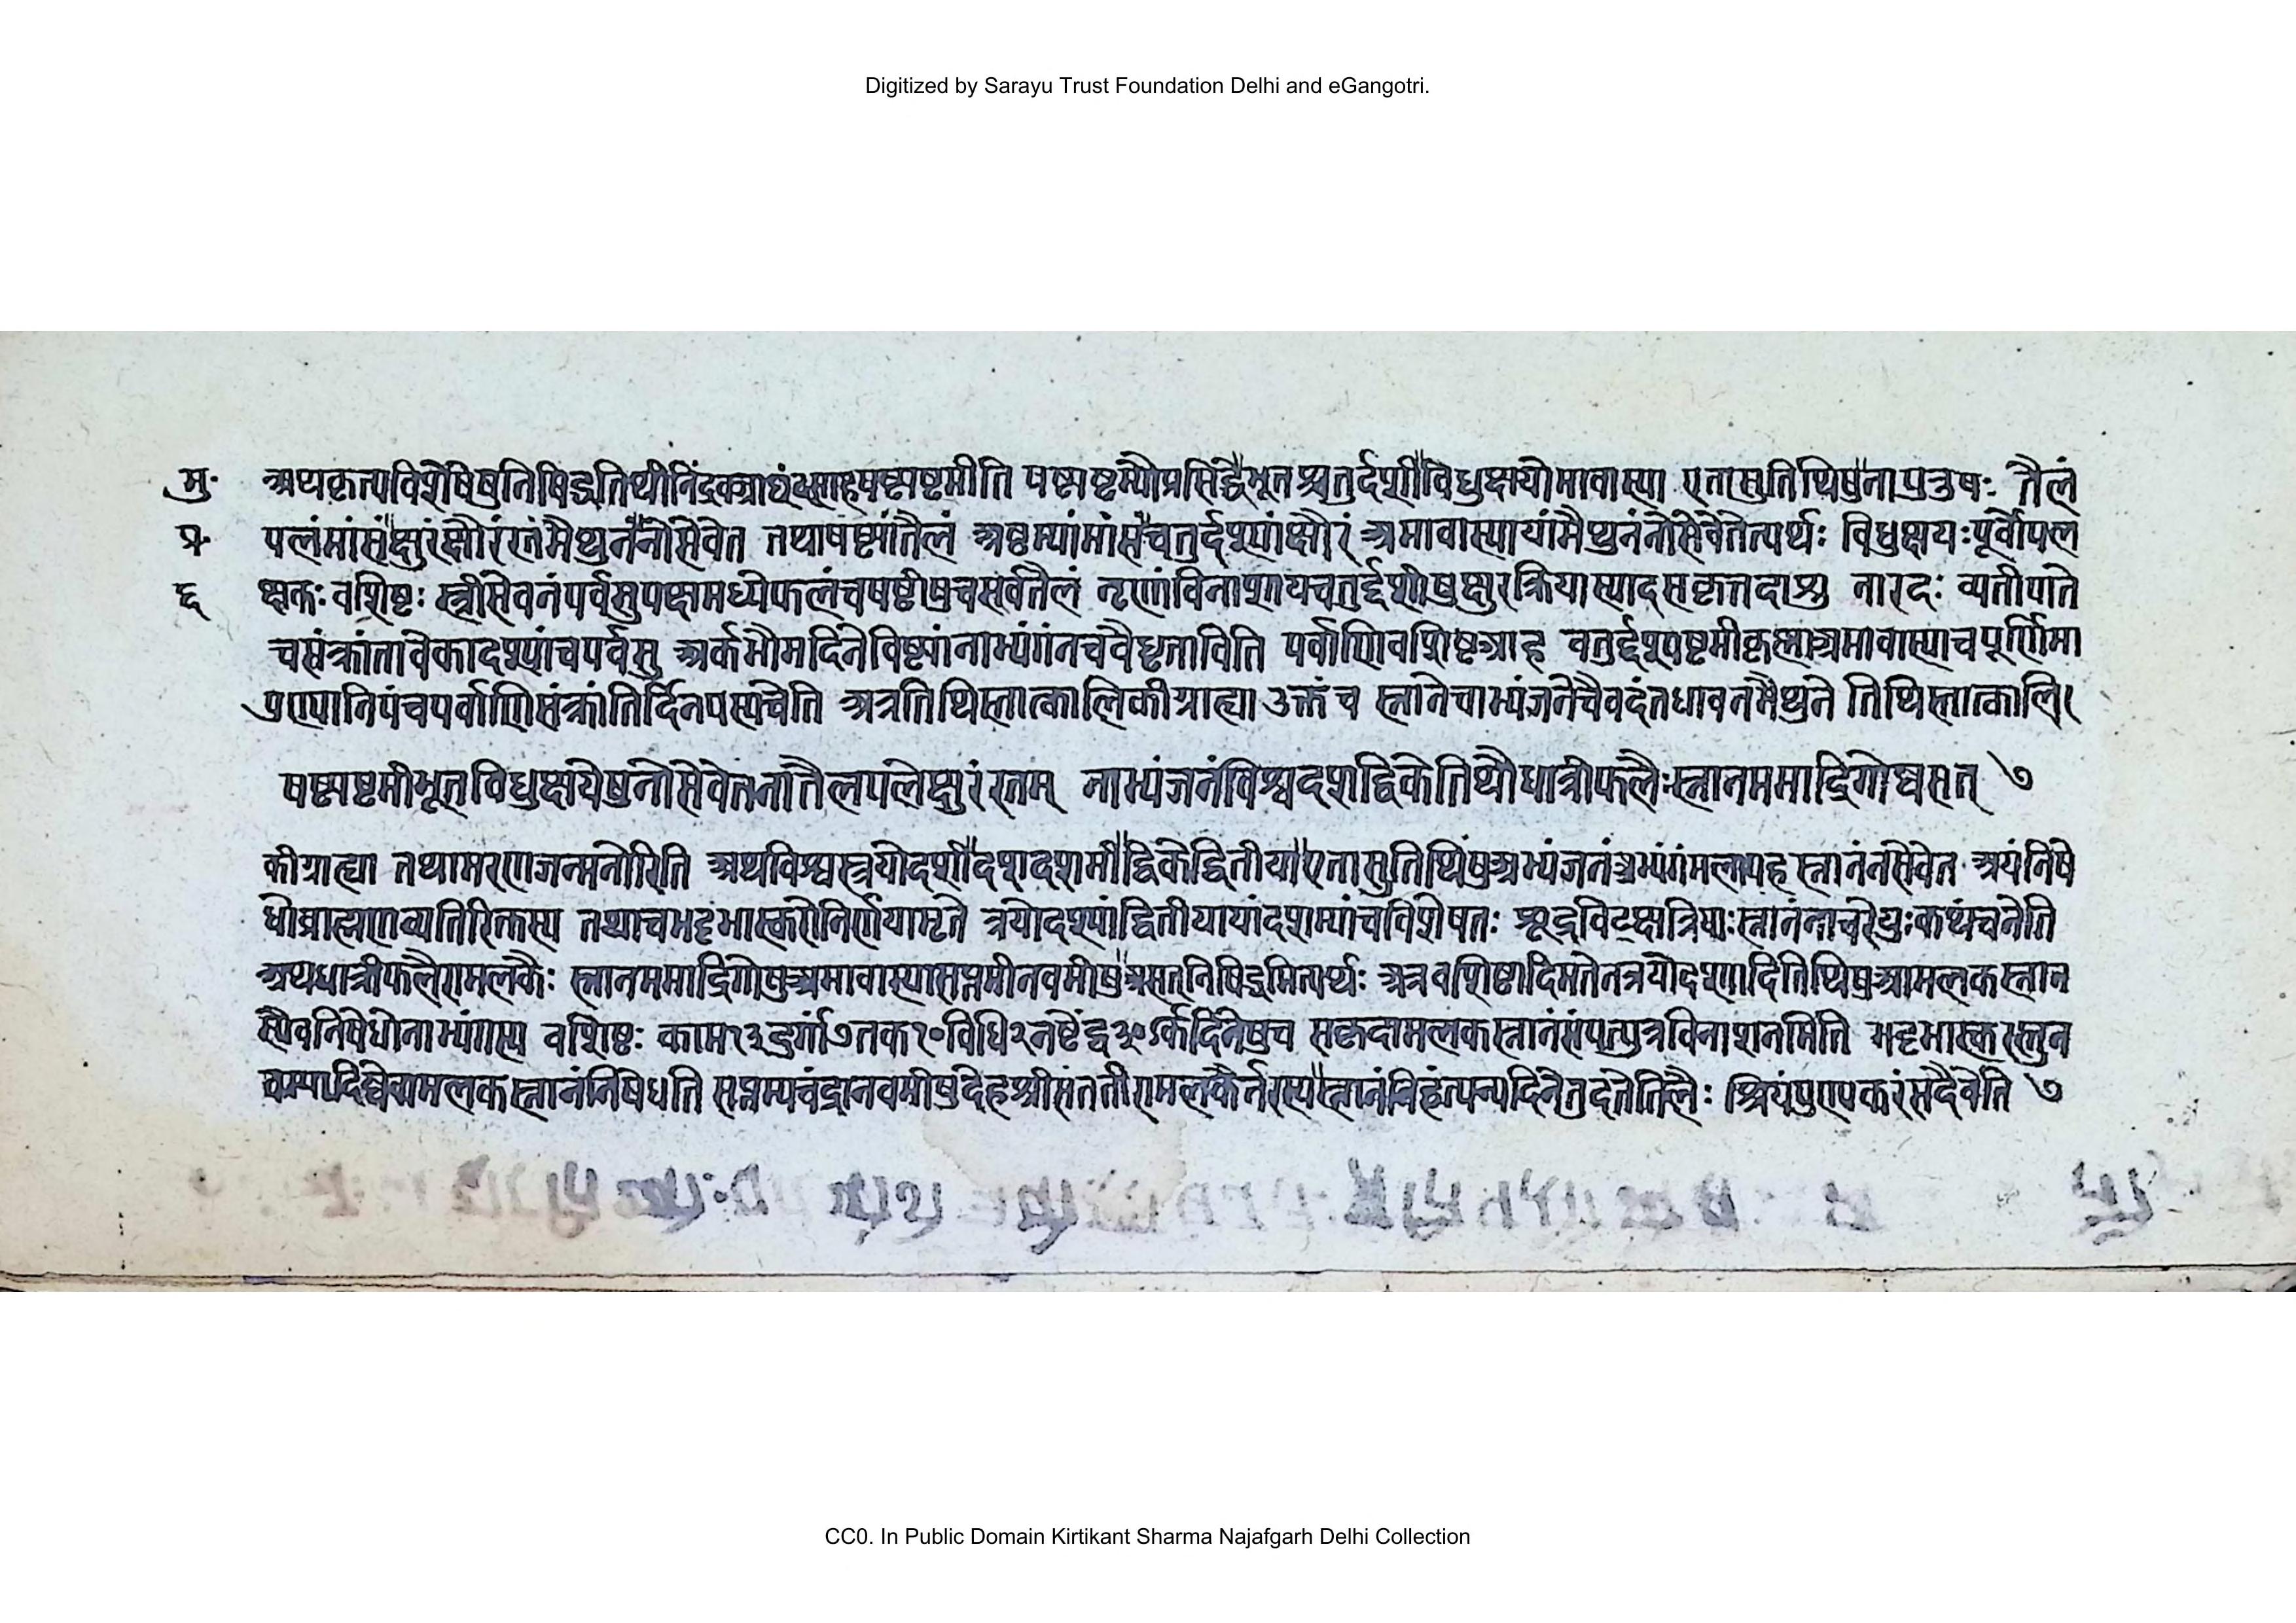 Digitized by Sarayu Trust Foundation Delhi and eGangotri.
मु॰ अथकृत्यविशेषेषुनिषिद्धतिथीनिंद्रवज्राद्यंवसाहषष्ट्यष्टमीति षष्ट्यष्टम्यौप्रसिद्धैभूतश्चतुर्दशीविधुक्षयोमावास्या एतासुतिथिषुनाप्रत्रुषः तैलं
प्र॰ पलंमांसंक्षुरंक्षौरंरतंमैथुनंनोसेवेत तथाषष्ट्यांतैलं अष्टम्यांमांसंचतुर्दश्यांक्षौरं अमावास्यायांमैथुनंनोसेवेतेत्यर्थः विधुक्षयःपूर्वोपल
द्द क्षकः वशिष्टः स्त्रीसेवनंपर्वसुपक्षमध्येफलंचषष्टीषुचसर्वतैलं नृणांविनाशायचतुर्द्दशीषुक्षुरक्रियास्यादसकृत्तदाश्रु नारदः व्यतीपाते
चसंक्रांतावेकादश्यांचपर्वसु अर्कभौमदिनेविष्ट्यांनाभ्यंगंनचवैधृताविति पर्वाणिवशिष्टआह चतुर्द्दश्यष्टमीकृष्णाअमावास्याचपूर्णिमा
पुण्यानिपंचपर्वाणिसंक्रांतिर्दिनपस्यचेति अत्रतिथिस्तात्कालिकीग्राह्या उक्तंच स्नानेचाभ्यंजनेचैवदंतधावनमैथुने तिथिस्तात्कालि।
षष्ट्यष्टमीभूतविधुक्षयेषुनोसेवेतनातैलपलेक्षुरंरतम् नाभ्यंजनंविश्वदशद्विकेतिथौधात्रीफलैःस्नानममाद्रिगोष्वसत् ७
कीग्राह्या तथामरणजन्मनोरिति अथविश्वस्त्रयोदशीदशदशमीद्विकेद्वितीयाएतासुतिथिषुअभ्यंजनंअभ्यंगंमलापहस्नानंनसेवेत अयंनिषे
धोब्राह्मणव्यतिरिक्तस्य तथाचभट्टभास्करोनिर्णयामृते त्रयोदश्यांद्वितीयायांदशम्यांचविशेषतः शूद्रविट्क्षत्रियाःस्नानंनाचरेयुःकथंचनेति
अथधात्रीफलैरामलकैः स्नानममाद्रिगोषुअमावास्यासप्तमीनवमीषुअसत्निषिद्धमित्यर्थः अत्रवशिष्टादिमतेनत्रयोदश्यादितिथिषुआमलकस्नान
स्यैवनिषेधोनाभ्यंगस्य वशिष्टः काम१३दुर्गा७तक१०विधि२नष्टेंद्व३०र्कदिनेषुच सकृदामलकस्नानंसंपत्पुत्रविनाशनमिति भट्टभास्करस्तुन
वम्यादिष्वेवामलकस्नानंनिषेधति सप्तम्यचंद्रानवमीषुदेहश्रीसंततीरामलकैर्नरस्यस्नानंनिहंत्यन्यदिनेतुदत्तेतिलैः श्रियंपुण्यकरंसदैवेति ७
CC0. In Public Domain Kirtikant Sharma Najafgarh Delhi Collection